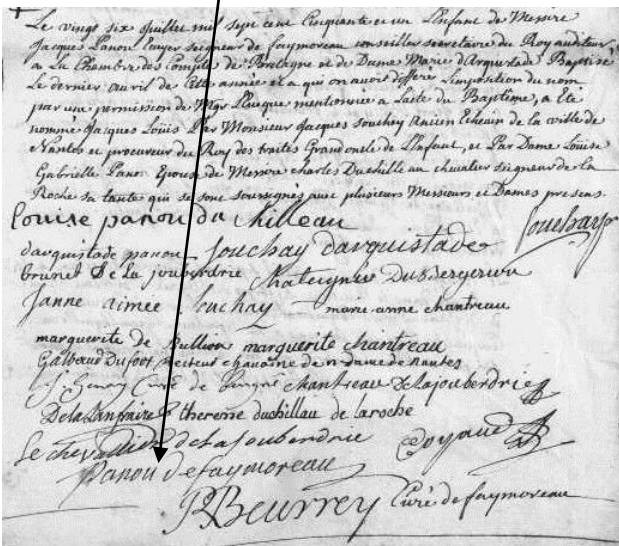 Le vingt six Juillet mil sept cent Cinquante et un L'enfant de Messire
Jacques Panou Ecuyer seigneur de faymoreau conseiller secretaire du Roy auditeur
a La Chambre des Comptes de Bretagne et de Dame Marie d'arquistade Baptisé
Le dernier avril de cette année et a qui on avoit differé L'imposition du nom
par une permission de Mgr L'eveque mentionnée a L'acte du Baptême, a Eté
nommé Jacques Loüis Par Monsieur Jacques Souchay Ancien Echevin de la ville de
Nantes et procureur du Roy des traites Grand oncle de L'enfant, et Par Dame Loüise
Gabrielle Panou Epouse de Messire charles Duchilleau chevalier seigneur de la
Roche sa tante qui se sont soussignés avec plusieurs Messieurs et Dames presens.
Louise panou du Chilleau
darquistade panou Souchay darquistade Souchay
brunet De La jouberdrie
Janne aimée Souchay marie anne chantreau
marguerite de Bullion marguerite chantreau
Galbaud Dufort Recteur chanoine de n. dame de nantes
curé de chantreau De La jouberdrie
therese duchillau de laroche
Le chevallier de La Jouberdrie
panou de faymoreau
Beurrey Curé de faymoreau